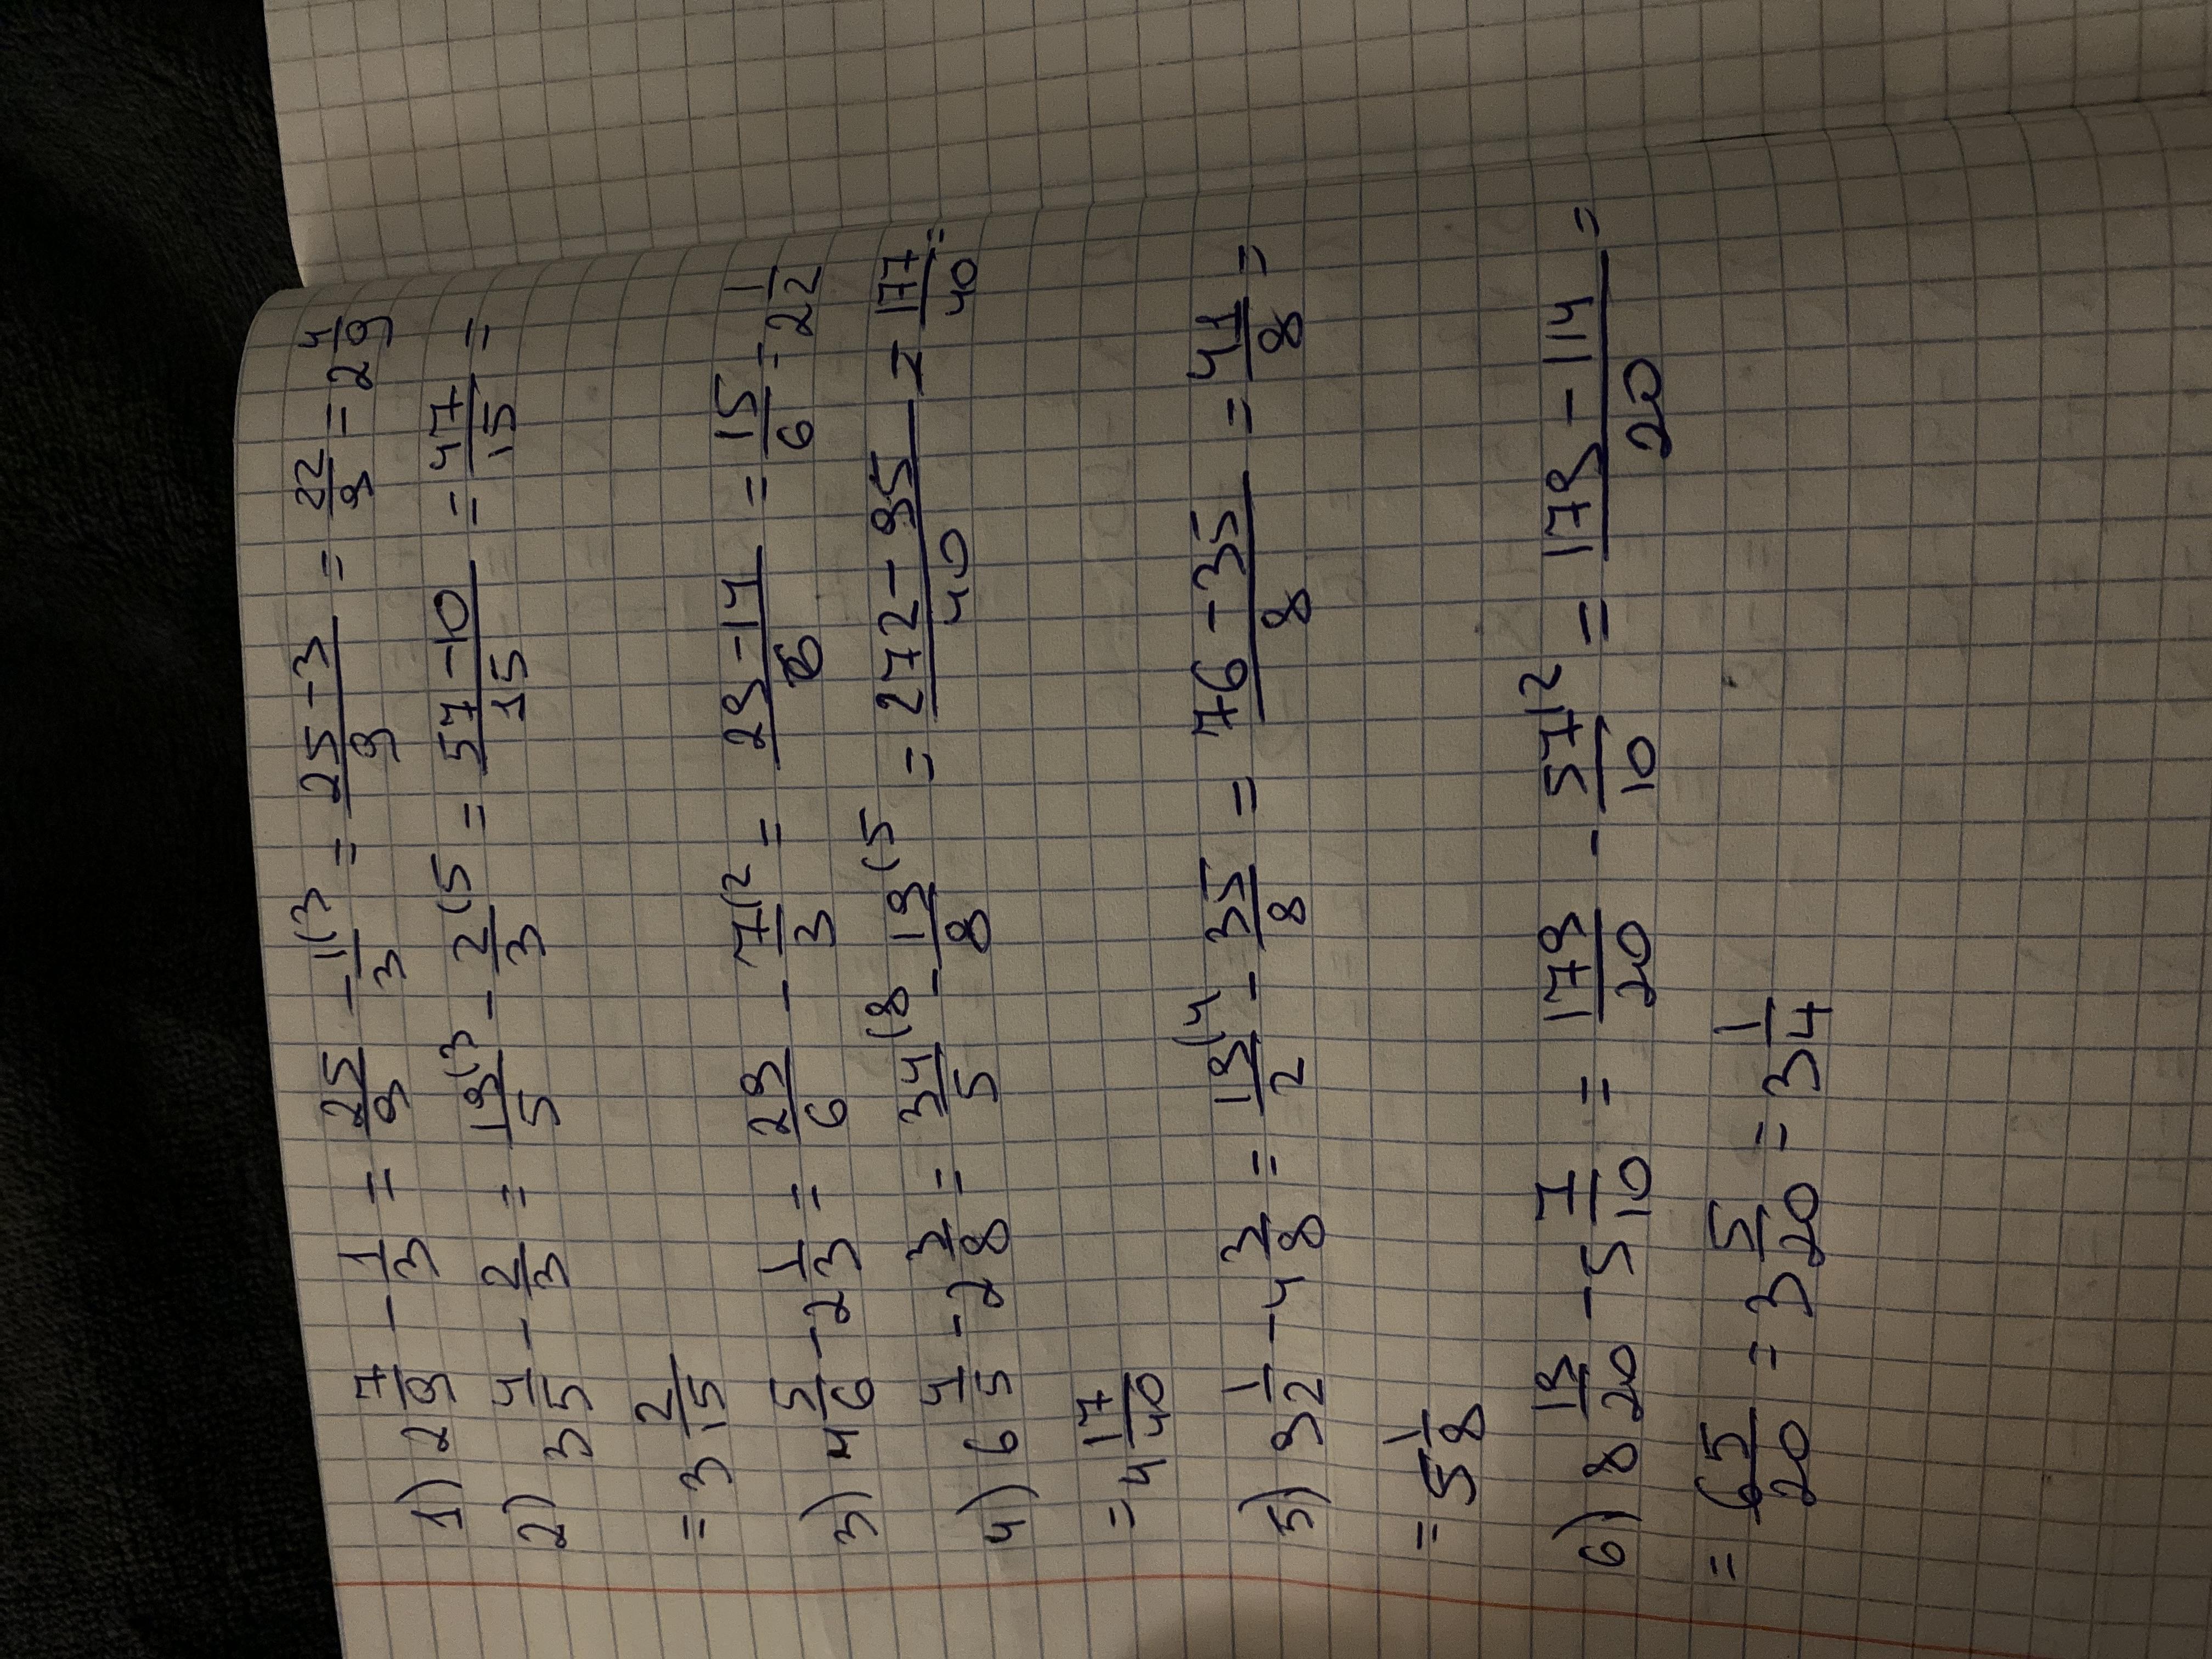 1) 2 7/9 - 1/3 = 25/9 - 1(3/3 = 25-3/9 = 22/9 = 2 4/9
2) 3 4/5 - 2/3 = 19(3/5 - 2(5/3 = 57-10/15 = 47/15 =
= 3 2/15
3) 4 5/6 - 2 1/3 = 29/6 - 7(2/3 = 29-14/6 = 15/6 = 2 1/2
4) 6 4/5 - 2 3/8 = 34(8/5 - 19(5/8 = 272-95/40 = 177/40 =
= 4 17/40
5) 9 1/2 - 4 3/8 = 19(4/2 - 35/8 = 76-35/8 = 41/8 =
= 5 1/8
6) 8 19/20 - 5 7/10 = 179/20 - 57(2/10 = 179-114/20 =
= 65/20 = 3 5/20 = 3 1/4